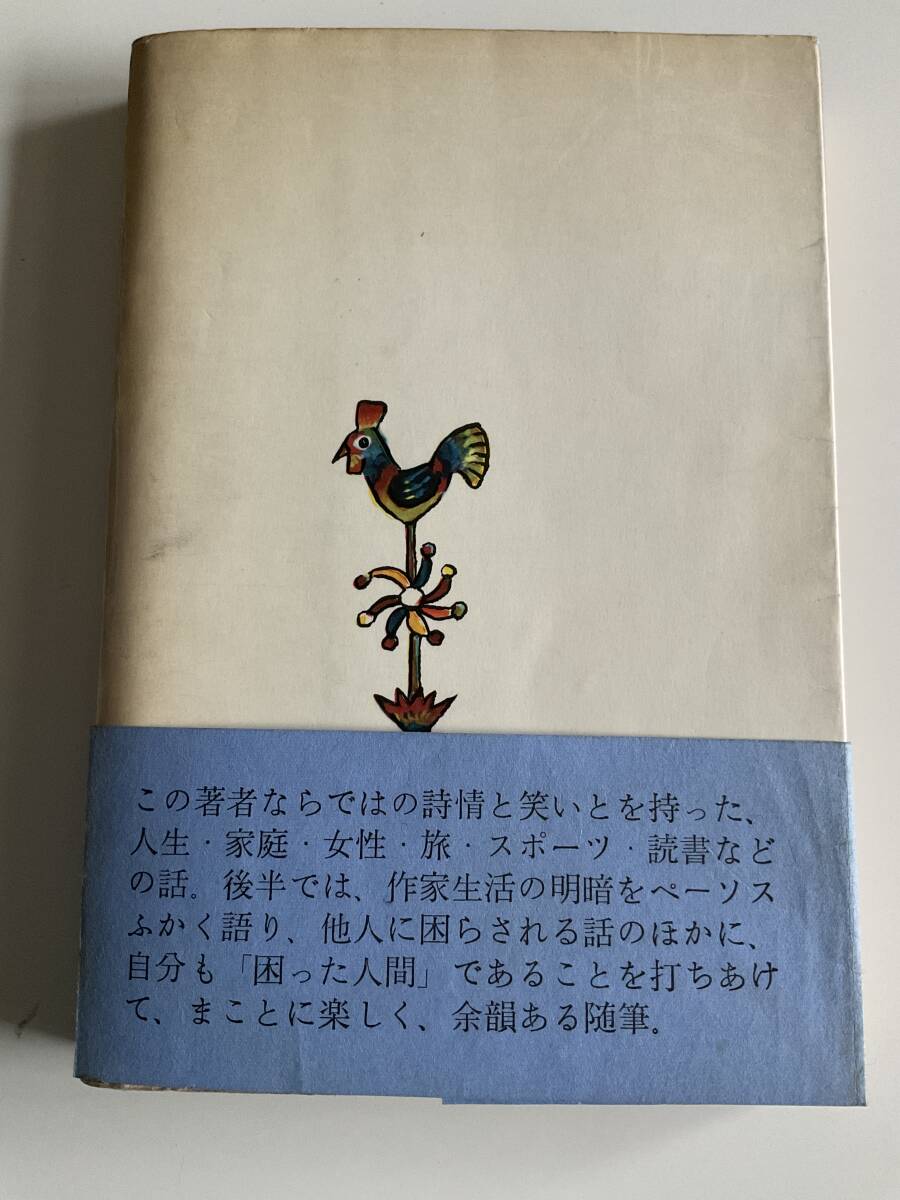 この著者ならではの詩情と笑いとを持った、
人生・家庭・女性・旅・スポーツ・読書など
の話。後半では、作家生活の明暗をペーソス
ふかく語り、他人に困らされる話のほかに、
自分も「困った人間」であることを打ちあけ
て、まことに楽しく、余韻ある随筆。